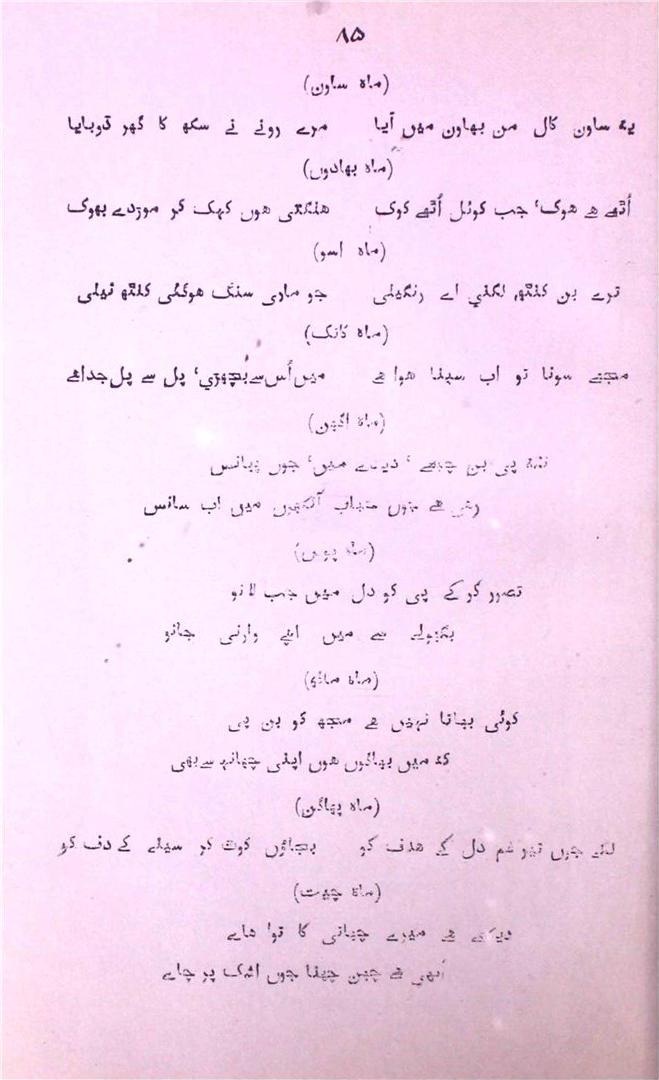 ۸۵
(ماہ ساون)
یہ ساون کال من بھاون میں آیا مرے رونے نے سکھ کا گھر ڈوبایا
(ماہ بھادوں)
اُٹھے ہے ہوک‘ جب کوئل اُٹھے کوک ھلگتی ہوں کہک کو مورٔدے بھوک
(ماہ اسو)
ترے بن کنٹھہ لگنی اے رنگیلی جو ماری سنگ ہوگئی کنٹھ نیلی
(ماہ کاتک)
مجہے سونا تو اب سپنا ہوا ہے میں اُس سے بُچھڑی‘ پل سے پل جدا ہے
(ماہ اگھن)
پی بن چبھے ‘ دیدے میں‘ جوں پہانس
ہے جوں حباب آنکھوں میں اب سانس
(ماہ پوس)
تصور کر کے پی کو دل میں جب لانو
بگہولے سے میں اپنے وارنی جانو
(ماہ مانو)
کوئی بھاتا نہیں ہے مجھ کو بن پی
کہ میں بھاگوں ہوں اپنی چھانہہ سے بھی
(ماہ پھاگن)
لگے جوں تیر غم دل کے ہدف کو بجاؤں کوٹ کر سینے کے دف کو
(ماہ چیت)
دیکہے ہے میرے چہاتی کا توا ہاے
اُبھی ہے چہن چھنا جوں اشک پر جاے